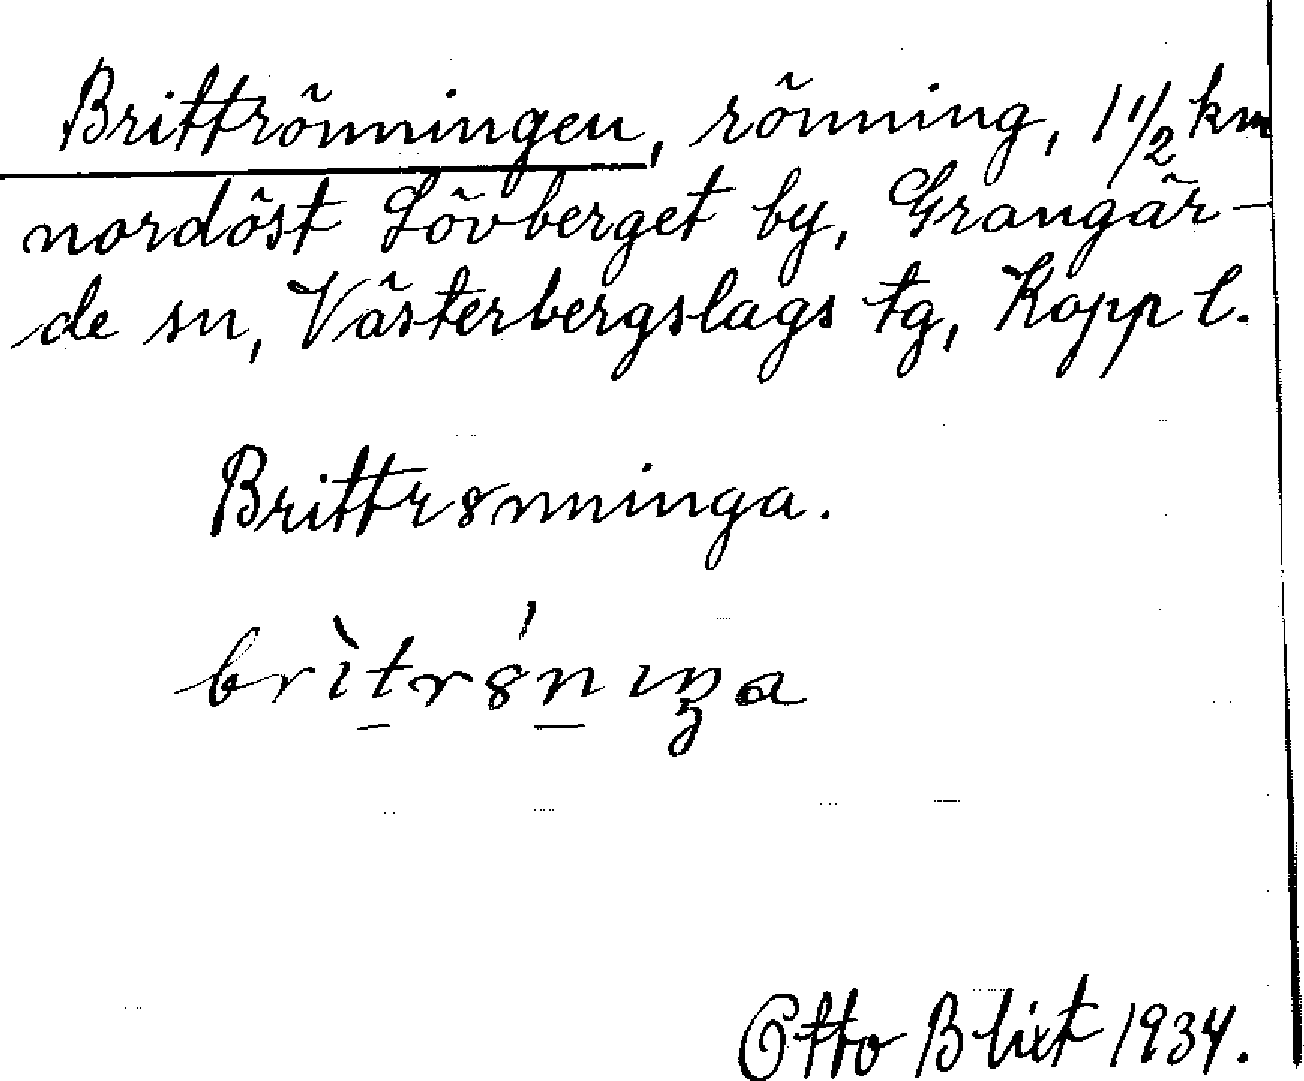 Brittrönningen, rönning, 1 1/2 km
nordöst Lövberget by, Grangär-
de sn, Västerbergslags tg, Kopp l.
Brittrȣnninga.
brìtrȣ́nıŋa
Otto Blixt 1934.